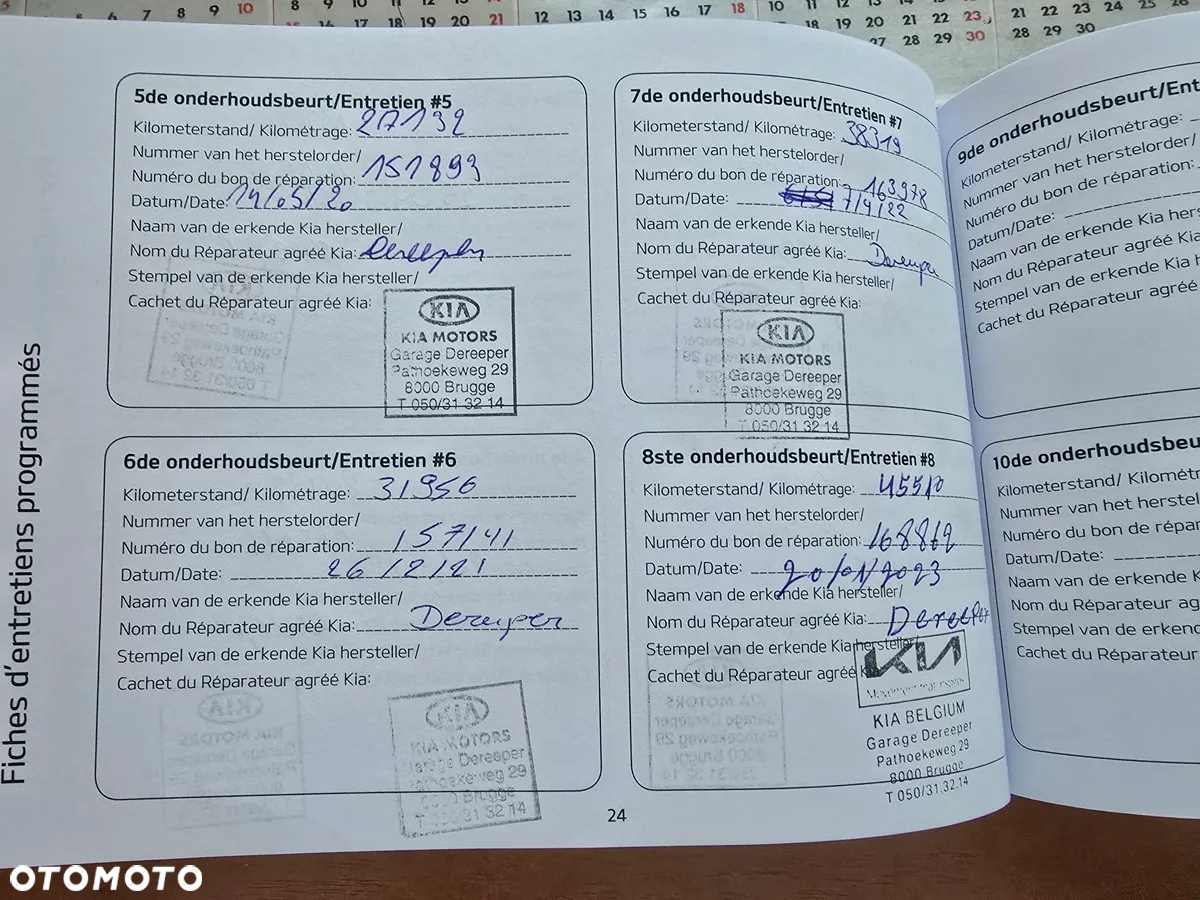 5 6 7 8 9 10
8 9 10 11 12 13 14
15 16 17 18 19 20 21
12 13 14 15 16 17 18
10 11 12 13
18 19 20 21 22 23
27 28 29 30
21 22 23 24 25 26
28 29 30
Fiches d'entretiens programmés
5de onderhoudsbeurt/Entretien #5
Kilometerstand/ Kilométrage: 27132
Nummer van het herstelorder/
Numéro du bon de réparation: 151893
Datum/Date: 14/05/20
Naam van de erkende Kia hersteller/
Nom du Réparateur agréé Kia: Dereeper
Stempel van de erkende Kia hersteller/
Cachet du Réparateur agréé Kia:
KIA
KIA MOTORS
Garage Dereeper
Pathoekeweg 29
8000 Brugge
T 050/31 32 14
6de onderhoudsbeurt/Entretien #6
Kilometerstand/ Kilométrage: 31956
Nummer van het herstelorder/
Numéro du bon de réparation: 157141
Datum/Date: 26/2/21
Naam van de erkende Kia hersteller/
Nom du Réparateur agréé Kia: Dereeper
Stempel van de erkende Kia hersteller/
Cachet du Réparateur agréé Kia:
KIA
KIA MOTORS
Garage Dereeper
Pathoekeweg 29
8000 Brugge
T 050/31 32 14
7de onderhoudsbeurt/Entretien #7
Kilometerstand/ Kilométrage: 38319
Nummer van het herstelorder/
Numéro du bon de réparation: 163978
Datum/Date: 7/4/22
Naam van de erkende Kia hersteller/
Nom du Réparateur agréé Kia: Dereeper
Stempel van de erkende Kia hersteller/
Cachet du Réparateur agréé Kia:
KIA
KIA MOTORS
Garage Dereeper
Pathoekeweg 29
8000 Brugge
T 050/31 32 14
8ste onderhoudsbeurt/Entretien #8
Kilometerstand/ Kilométrage: 45510
Nummer van het herstelorder/
Numéro du bon de réparation: 168862
Datum/Date: 20/01/2023
Naam van de erkende Kia hersteller/
Nom du Réparateur agréé Kia: Dereeper
Stempel van de erkende Kia hersteller/
Cachet du Réparateur agréé
KIA
Movement that inspires
KIA BELGIUM
Garage Dereeper
Pathoekeweg 29
8000 Brugge
T 050/31.32.14
24
9de onderhoudsbeurt/Ent
Kilometerstand/ Kilométrage:
Nummer van het herstelorder/
Numéro du bon de réparation:
Datum/Date:
Naam van de erkende Kia herste
Nom du Réparateur agréé Kia:
Stempel van de erkende Kia h
Cachet du Réparateur agréé
10de onderhoudsbeu
Kilometerstand/ Kilométr
Nummer van het herstel
Numéro du bon de répar
Datum/Date:
Naam van de erkende K
Nom du Réparateur ag
Stempel van de erkend
Cachet du Réparateur
OTOMOTO